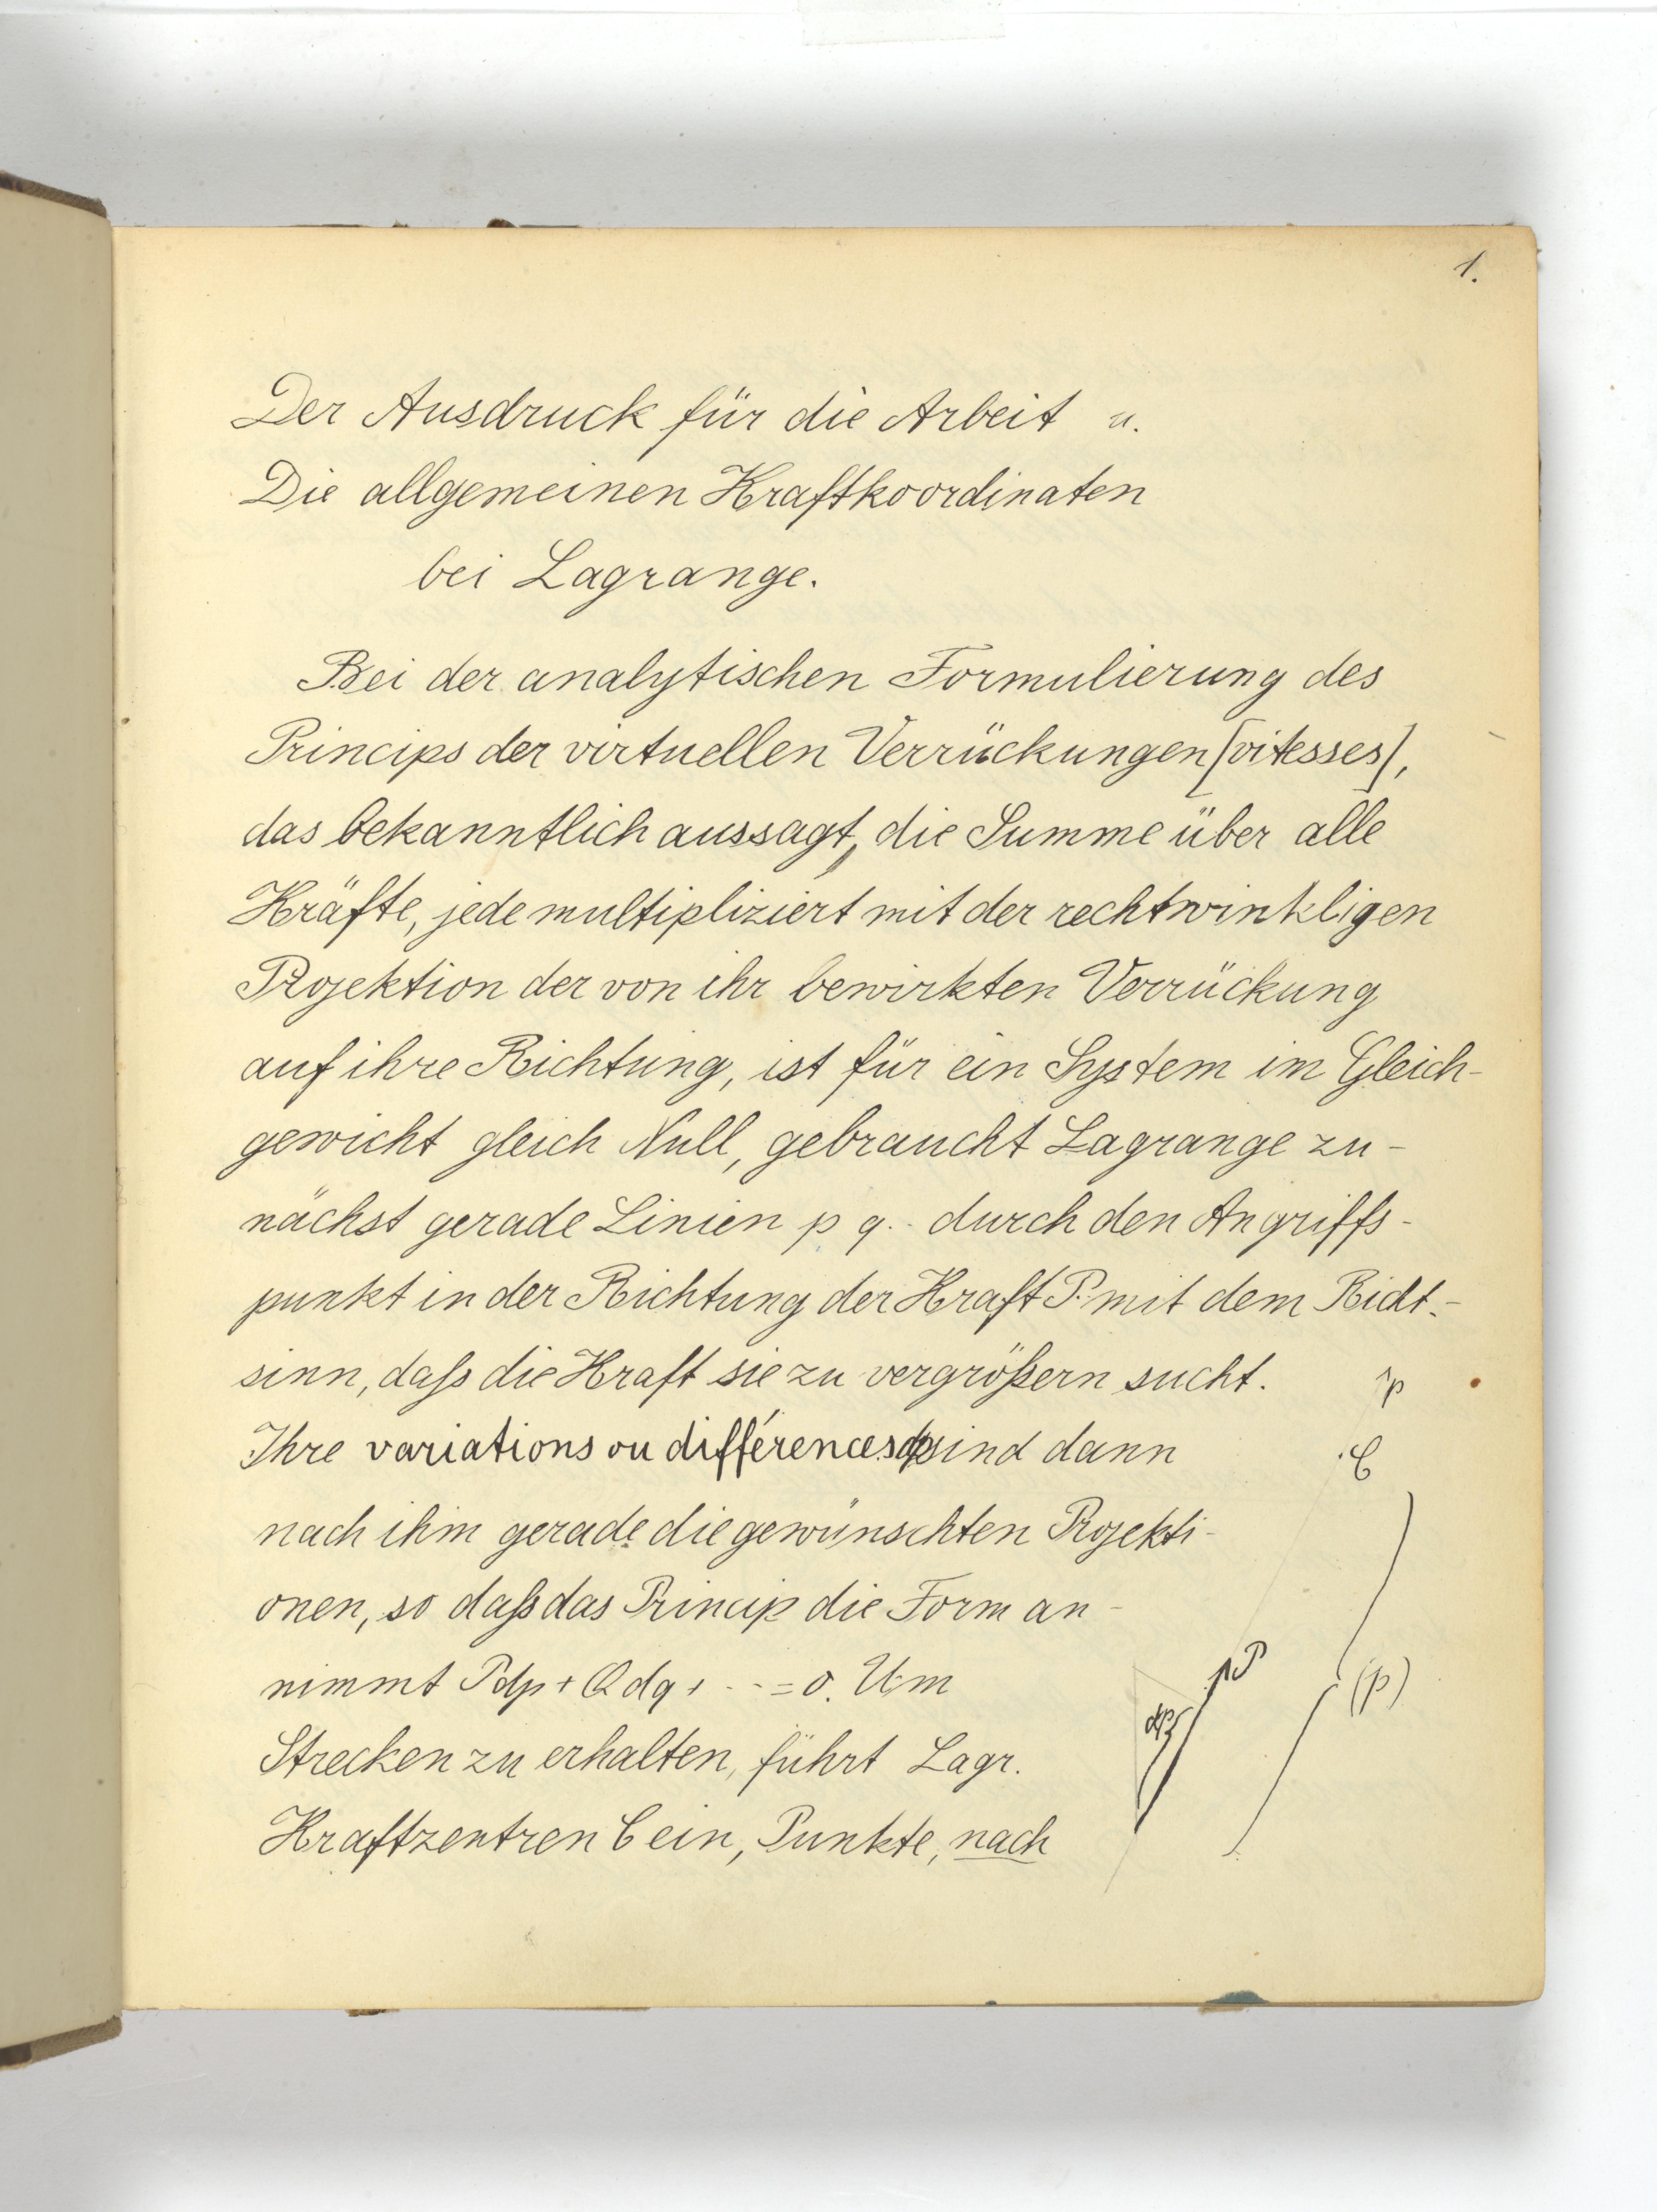 1.
Der Ausdruck für die Arbeit u.
Die allgemeinen Kraftkoordinaten
bei Lagrange.
Bei der analytischen Formulierung des
Princips der virtuellen Verrückungen [vitesses],
das bekanntlich aussagt, die Summe über alle
Kräfte, jede multipliziert mit der rechtwinkligen
Projektion der von ihr bewirkten Verrückung
auf ihre Richtung, ist für ein System im Gleich-
gewicht gleich Null, gebraucht Lagrange zu-
nächst gerade Linien p q .. durch den Angriffs-
punkt in der Richtung der Kraft P.. mit dem Richt.-
sinn, daß die Kraft sie zu vergrößern sucht.
Ihre variations ou différences dp sind dann
nach ihm gerade die gewünschten Projekti-
onen, so daß das Princip die Form an-
nimmt Pdp + Qdq + --- = 0. Um
Strecken zu erhalten, führt Lagr.
Kraftzentren C ein, Punkte, nach
p
C
P
(p)
dp